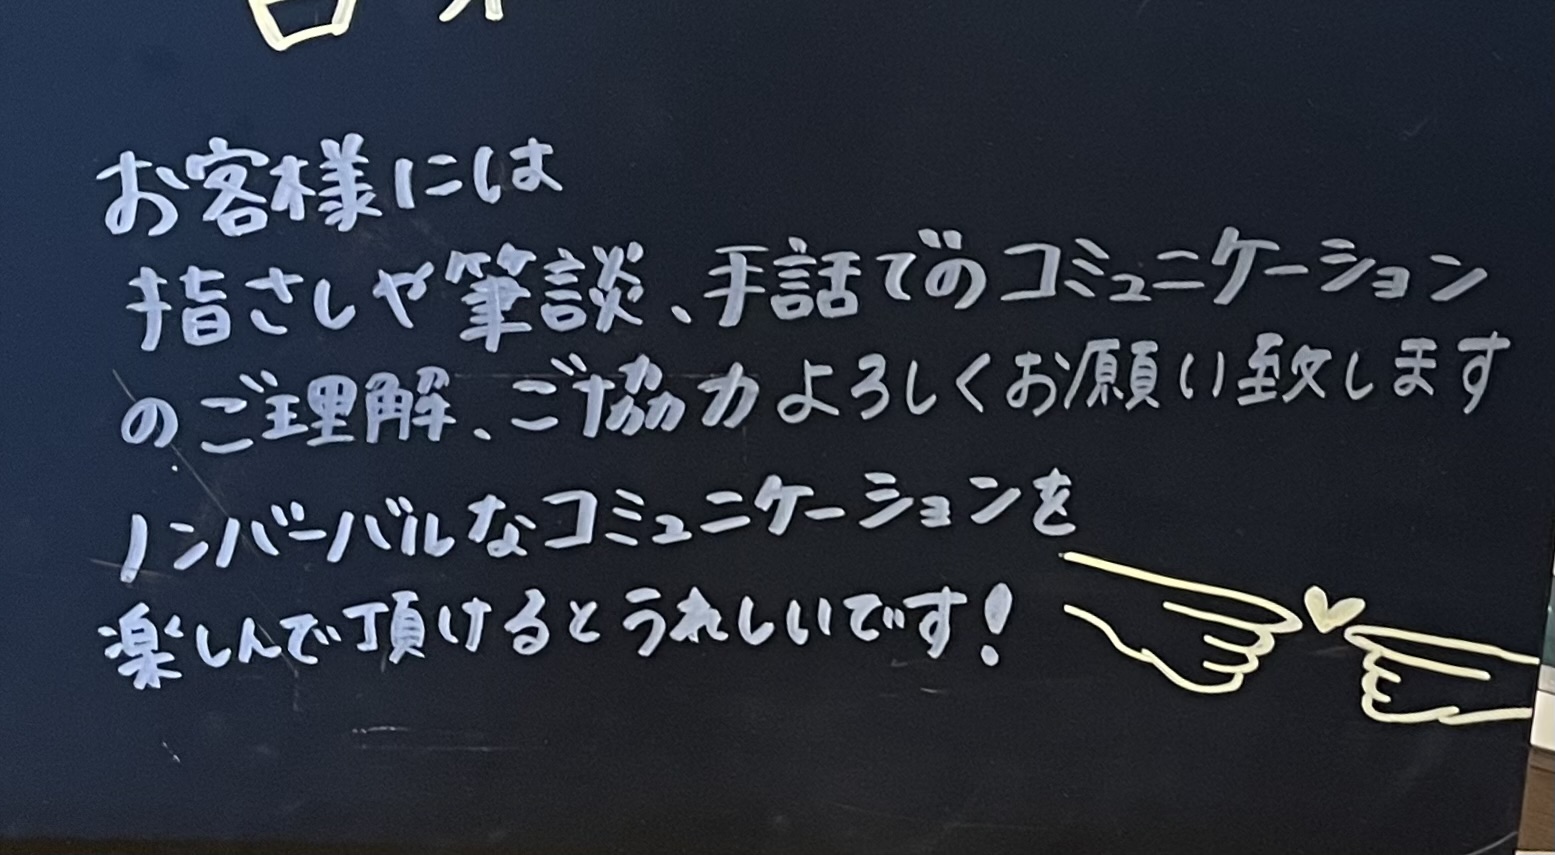 お客様には
指さしや筆談、手話でのコミュニケーション
のご理解、ご協力よろしくお願い致します
ノンバーバルなコミュニケーションを
楽しんで頂けるとうれしいです!